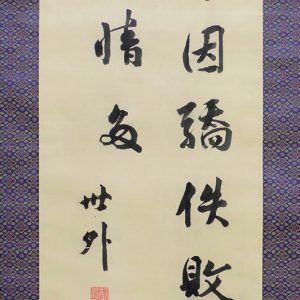 因驕佚敗
情多
世外